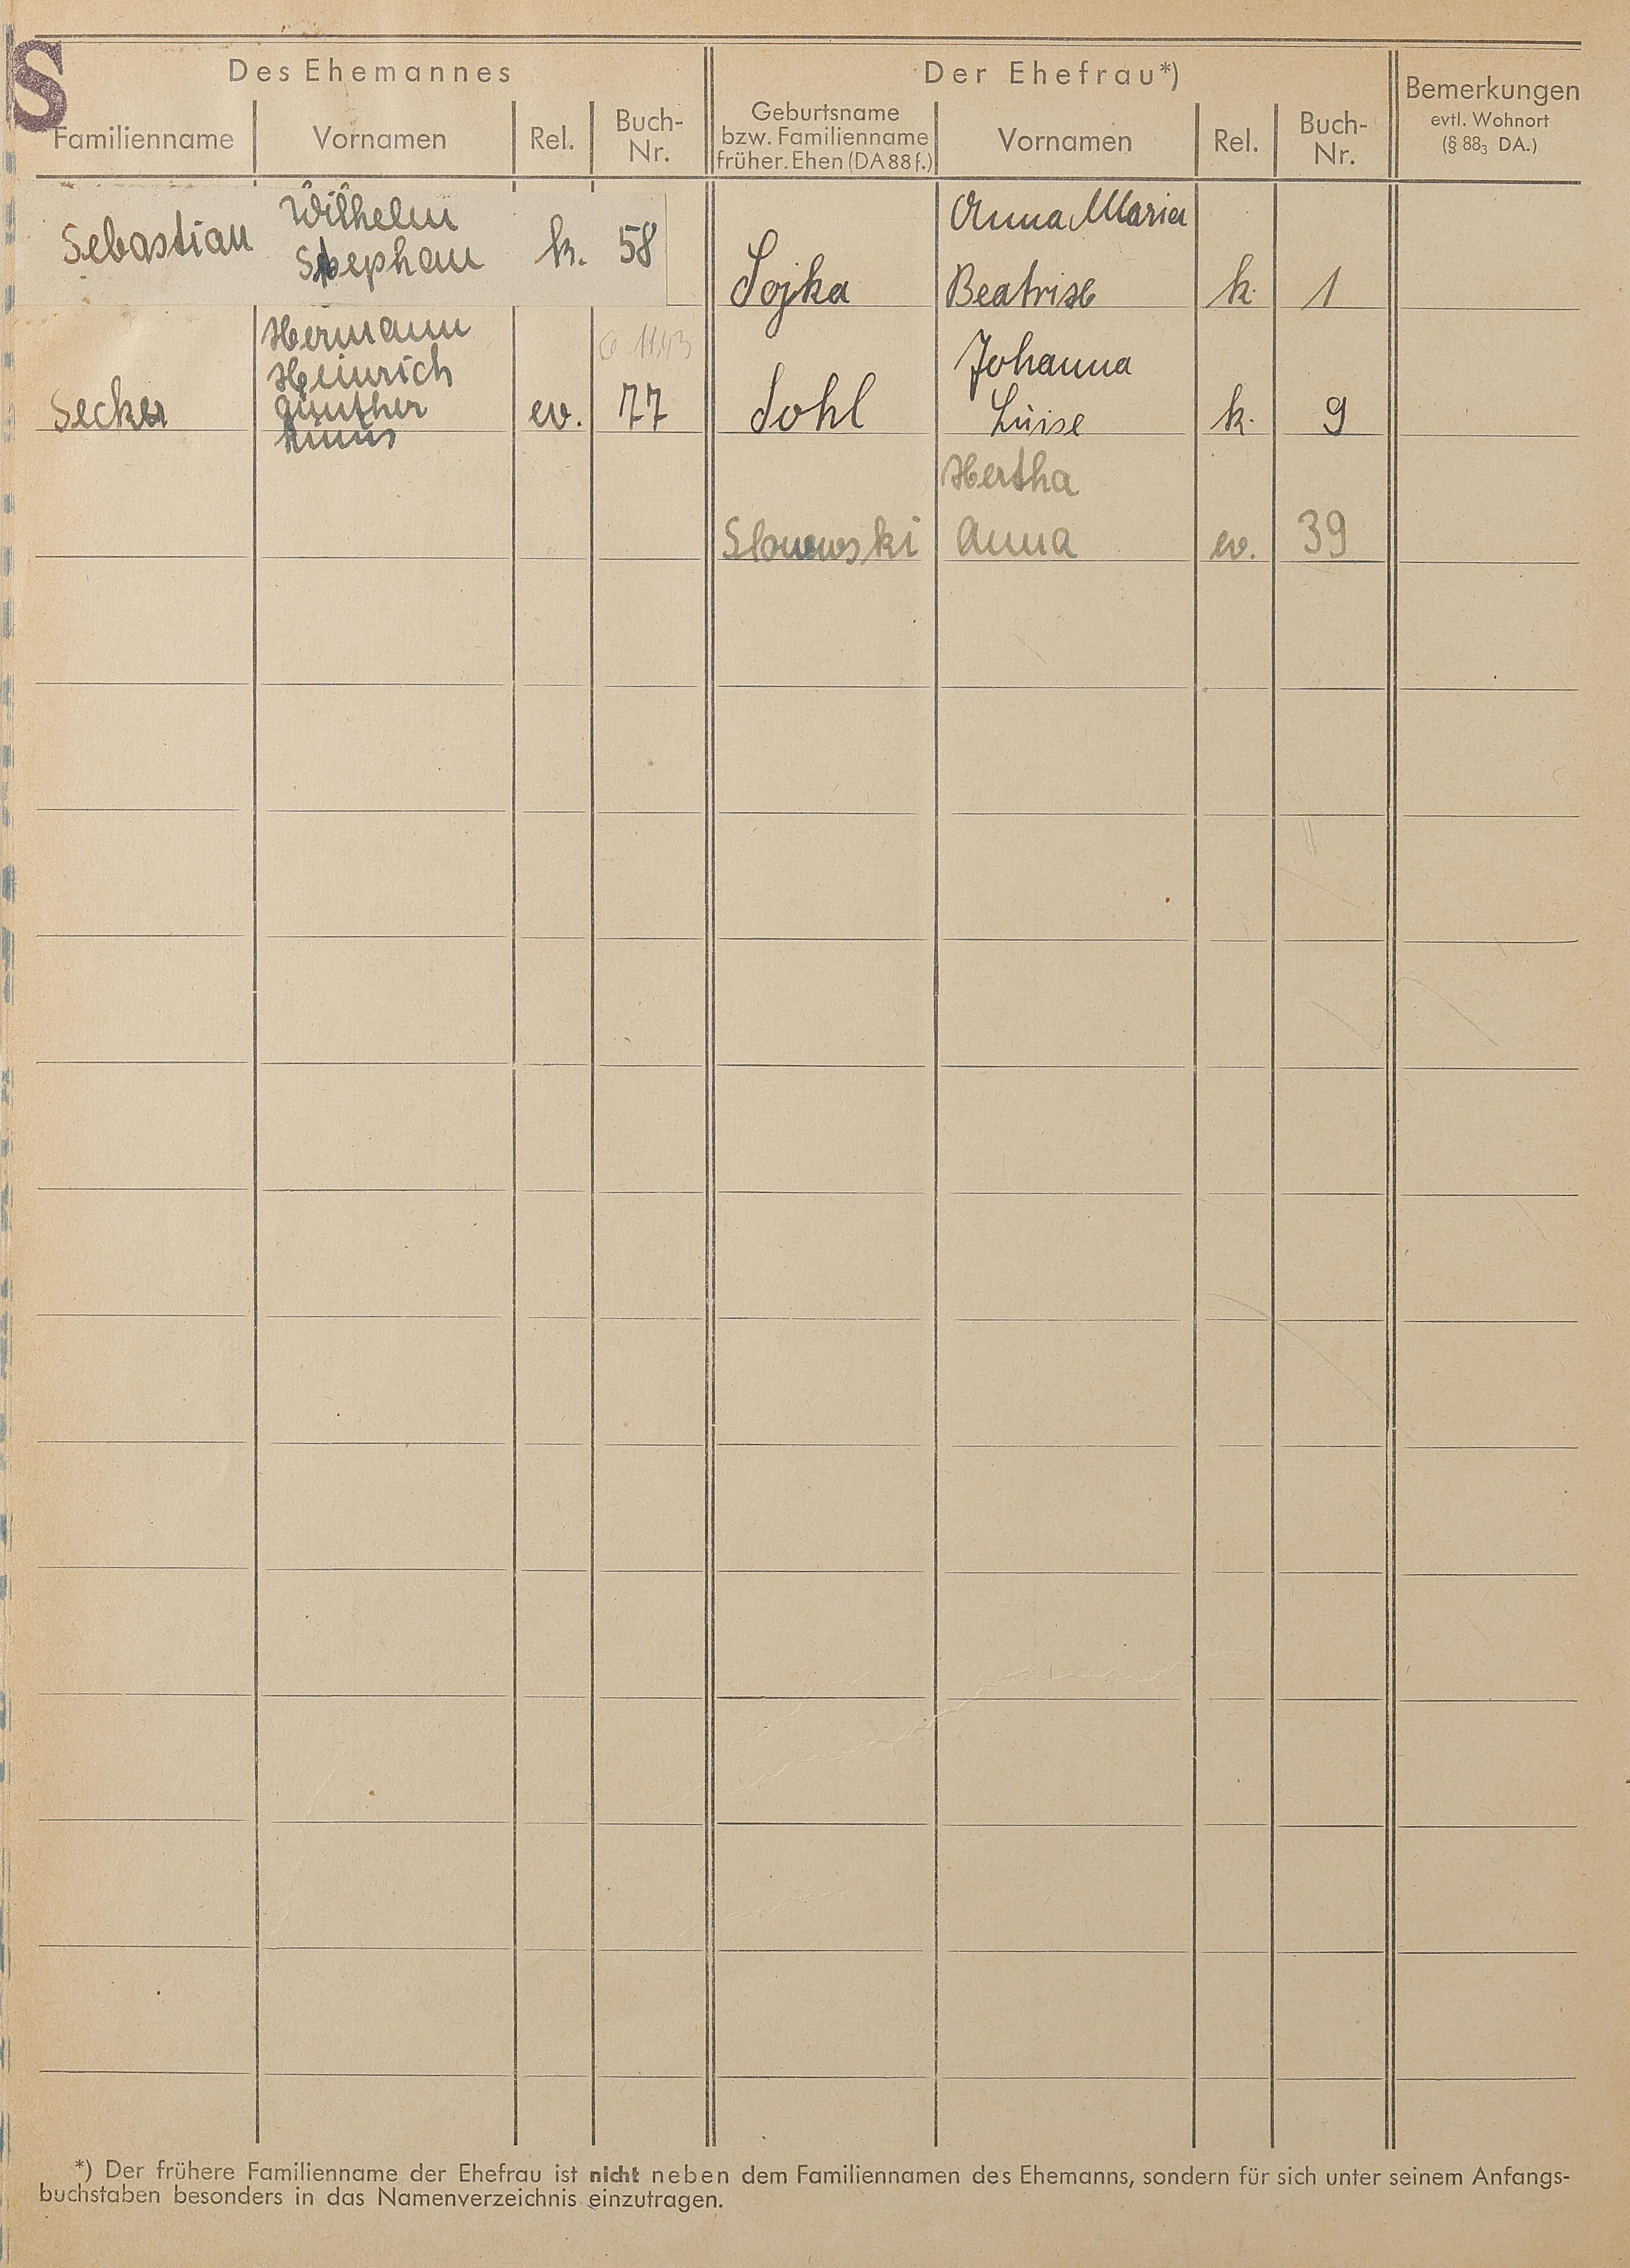 S
Des Ehemannes
Der Ehefrau*)
Familienname
Vornamen
Rel.
Buch-
Nr.
Geburtsname
bzw. Familienname
früher. Ehen (DA 88 f.)
Vornamen
Rel.
Buch-
Nr.
Bemerkungen
evtl. Wohnort
(§ 88₃ DA.)
Sebastian
Wilhelm
Stephan
k.
58
Sojka
Anna Maria
Beatrise
k.
1
Secker
Hermann
Heinrich
Günther
ev.
77
Sohl
Johanna
Luise
k.
9
Hertha
Anna
ev.
39
*) Der frühere Familienname der Ehefrau ist nicht neben dem Familiennamen des Ehemanns, sondern für sich unter seinem Anfangs-
buchstaben besonders in das Namenverzeichnis einzutragen.